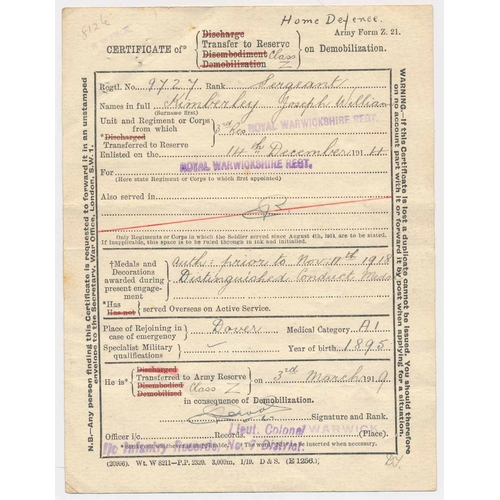 8126
Home Defence.
Army Form Z. 21.
CERTIFICATE of* Discharge Transfer to Reserve Disembodiment Demobilization Class Z on Demobilization.
Regtl. No. 9727 Rank Sergeant
Names in full Kimberley Joseph William
(Surname first)
Unit and Regiment or Corps
from which 3rd Res ROYAL WARWICKSHIRE REGT.
*Discharged
Transferred to Reserve
Enlisted on the 14th December 1914
For ROYAL WARWICKSHIRE REGT.
(Here state Regiment or Corps to which first appointed)
Also served in
Only Regiments or Corps in which the Soldier served since August 4th, 1914, are to be stated.
If inapplicable, this space is to be ruled through in ink and initialled.
†Medals and
Decorations
awarded during
present engagement
Auth: prior to Nov 11th 1918
Distinguished Conduct Medal
*Has
Has not
served Overseas on Active Service.
Place of Rejoining in
case of emergency Dover Medical Category A1
Specialist Military
qualifications Year of birth 1895
He is* Discharged Transferred to Army Reserve Disembodied Demobilized Class Z on 3rd March 1919
in consequence of Demobilization.
Signature and Rank.
Lieut. Colonel
Officer i/c Records. WARWICK (Place).
i/c Infantry Records, No. 7 District.
(20906). Wt. W 8211—P.P. 2329. 3,000m. 1/19. D & S. (E 1256.)
WARNING.—If this Certificate is lost a duplicate cannot be issued. You should therefore
on no account part with it or forward it by post when applying for a situation.
N.B.—Any person finding this Certificate is requested to forward it in an unstamped
envelope to the Secretary, War Office, London, S.W. 1.